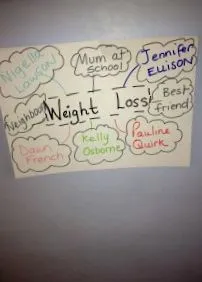 Nigella
Lawson
Mum at
school
Jennifer
ELLISON
Neighbour
Weight Loss!
Best
friend
Dawn
French
Kelly
Osborne
Pauline
Quirk